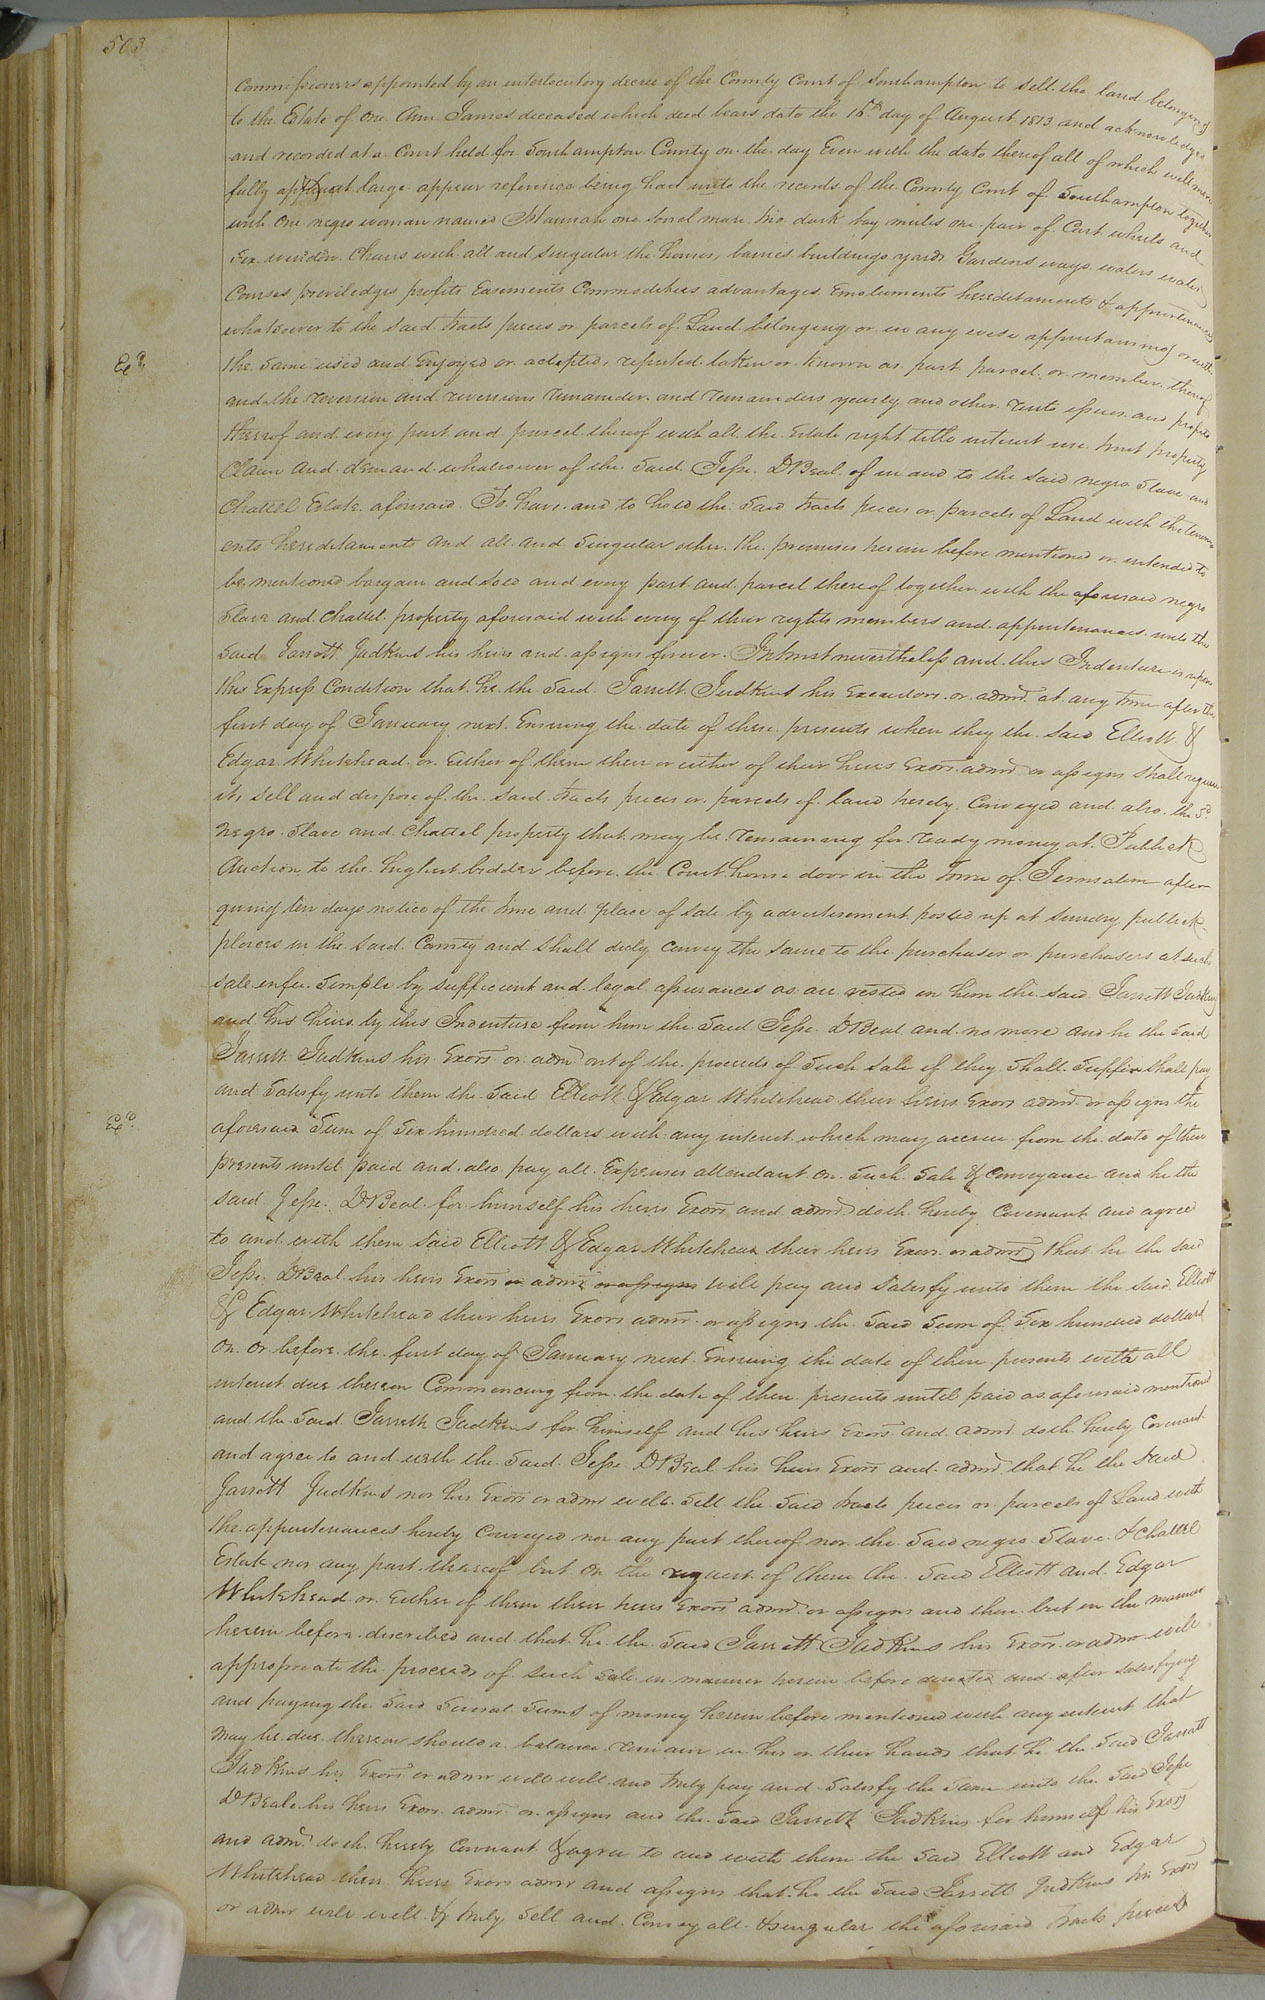 503
Commissioners appointed by an interlocutory decree of the County Court of Southampton to sell the land belonging
to the Estate of one Ann James deceased which deed bears date the 16th day of August 1813 and acknowledged
and recorded at a Court held for Southampton County on the day Even with the date thereof all of which will more
fully at large appear reference being had unto the records of the County Court of Southampton together
with One negro woman named Hannah one sorrel mare two dark bay mules one pair of Cart wheels and
Six Chairs with all and singular the houses, barnes buildings yards Gardens ways waters water
Courses priviledges profits Easements Commodities advantages Emoluments hereditaments & appurtenances
whatsoever to the said tracts pieces or parcels of Land belonging or in any wise appurtaining or with
the same used and Enjoyed or accepted, reputed taken or known as part parcel or member thereof
and the reversion and reversions remainder and remainders yearly and other rents issues and profits
thereof and every part and parcel thereof with all the Estate right title interest use trust property
Claim and demand whatsoever of the said Jesse D Beal of in and to the said negro Slave and
Chattel Estate aforesaid. To have and to hold the said tracts pieces or parcels of Land with the tenem
ents hereditaments and all and Singular other the premises herein before mentioned or intended to
be mentioned bargain and sold and every part and parcel thereof together with the aforesaid negro
Slave and chattel property aforesaid with every of their rights members and appurtenances unto the
said Jarrott Judkins his heirs and assigns forever. In trust nevertheless and this Indenture is upon
this Express Condition that he the said Jarrett Judkins his Executors or admrs at any time after the
first day of January next Ensuing the date of these presents when they the said Elliott &
Edgar Whitehead or Either of them their or either of their heirs Exors admrs or assigns shall require
it, sell and dispose of the said tracts pieces or parcels of land hereby Conveyed and also the sd
Negro Slave and Chattel property that may be remaining for ready money at Publick
Auction to the highest bidder before the Court house door in the Town of Jerusalem after
giving ten days notice of the time and place of sale by advertisement posted up at sundry publick
places in the said County and shall duly convey the same to the purchaser or purchasers at such
sale in fee simple by sufficient and legal assurances as are vested in him the said Jarrett Judkins
and his heirs by this Indenture from him the said Jesse D Beal and no more and he the said
Jarrett Judkins his Exors or admrs out of the proceeds of such sale if they shall suffice shall pay
and satisfy unto them the said Elliott & Edgar Whitehead their heirs Exors admrs or assigns the
aforesaid Sum of Six hundred dollars with any interest which may accrue from the date of these
presents until paid and also pay all Expenses attendant on such sale & conveyance and he the
said Jesse D Beal for himself his heirs Exors and admrs doth hereby Covenant and agree
to and with them said Elliott & Edgar Whitehead their heirs Exors or admrs that he the said
Jesse D Beal his heirs Exors or admrs or assigns will pay and satisfy unto them the said Elliott
& Edgar Whitehead their heirs Exors admrs or assigns the said Sum of Six hundred dollars
on or before the first day of January next Ensuing the date of these presents with all
interest due thereon Commencing from the date of these presents until paid as aforesaid mentioned
and the said Jarrett Judkins for himself and his heirs Exors and admrs doth hereby Covenant
and agree to and with the said Jesse D Beal his heirs Exors and admrs that he the said
Jarrott Judkins nor his Exors or admrs will sell the said tracts pieces or parcels of Land with
the appurtenances hereby Conveyed nor any part thereof nor the said negro Slave & chattel
Estate nor any part thereof but on the request of them the said Elliott and Edgar
Whitehead or Either of them their heirs Exors admrs or assigns and then but in the manner
herein before discribed and that he the said Jarrett Judkins his Exors or admrs will
appropriate the proceeds of such sale in manner herein before directed and after satisfying
and paying the said several Sums of money herein before mentioned with any interest that
may be due thereon should a balance remain in his or their hands that he the said Jarratt
Judkins his Exors or admrs will well and truly pay and satisfy the same unto the said Jesse
D Beal his heirs Exors admrs or assigns and the said Jarrett Judkins for himself his Exors
and admrs doth hereby Covenant & agree to and with them the said Elliott and Edgar
Whitehead their heirs Exors admrs and assigns that he the said Jarrett Judkins his Exors
or admrs will well & truly Sell and Convey all & singular the aforesaid tracts pieces